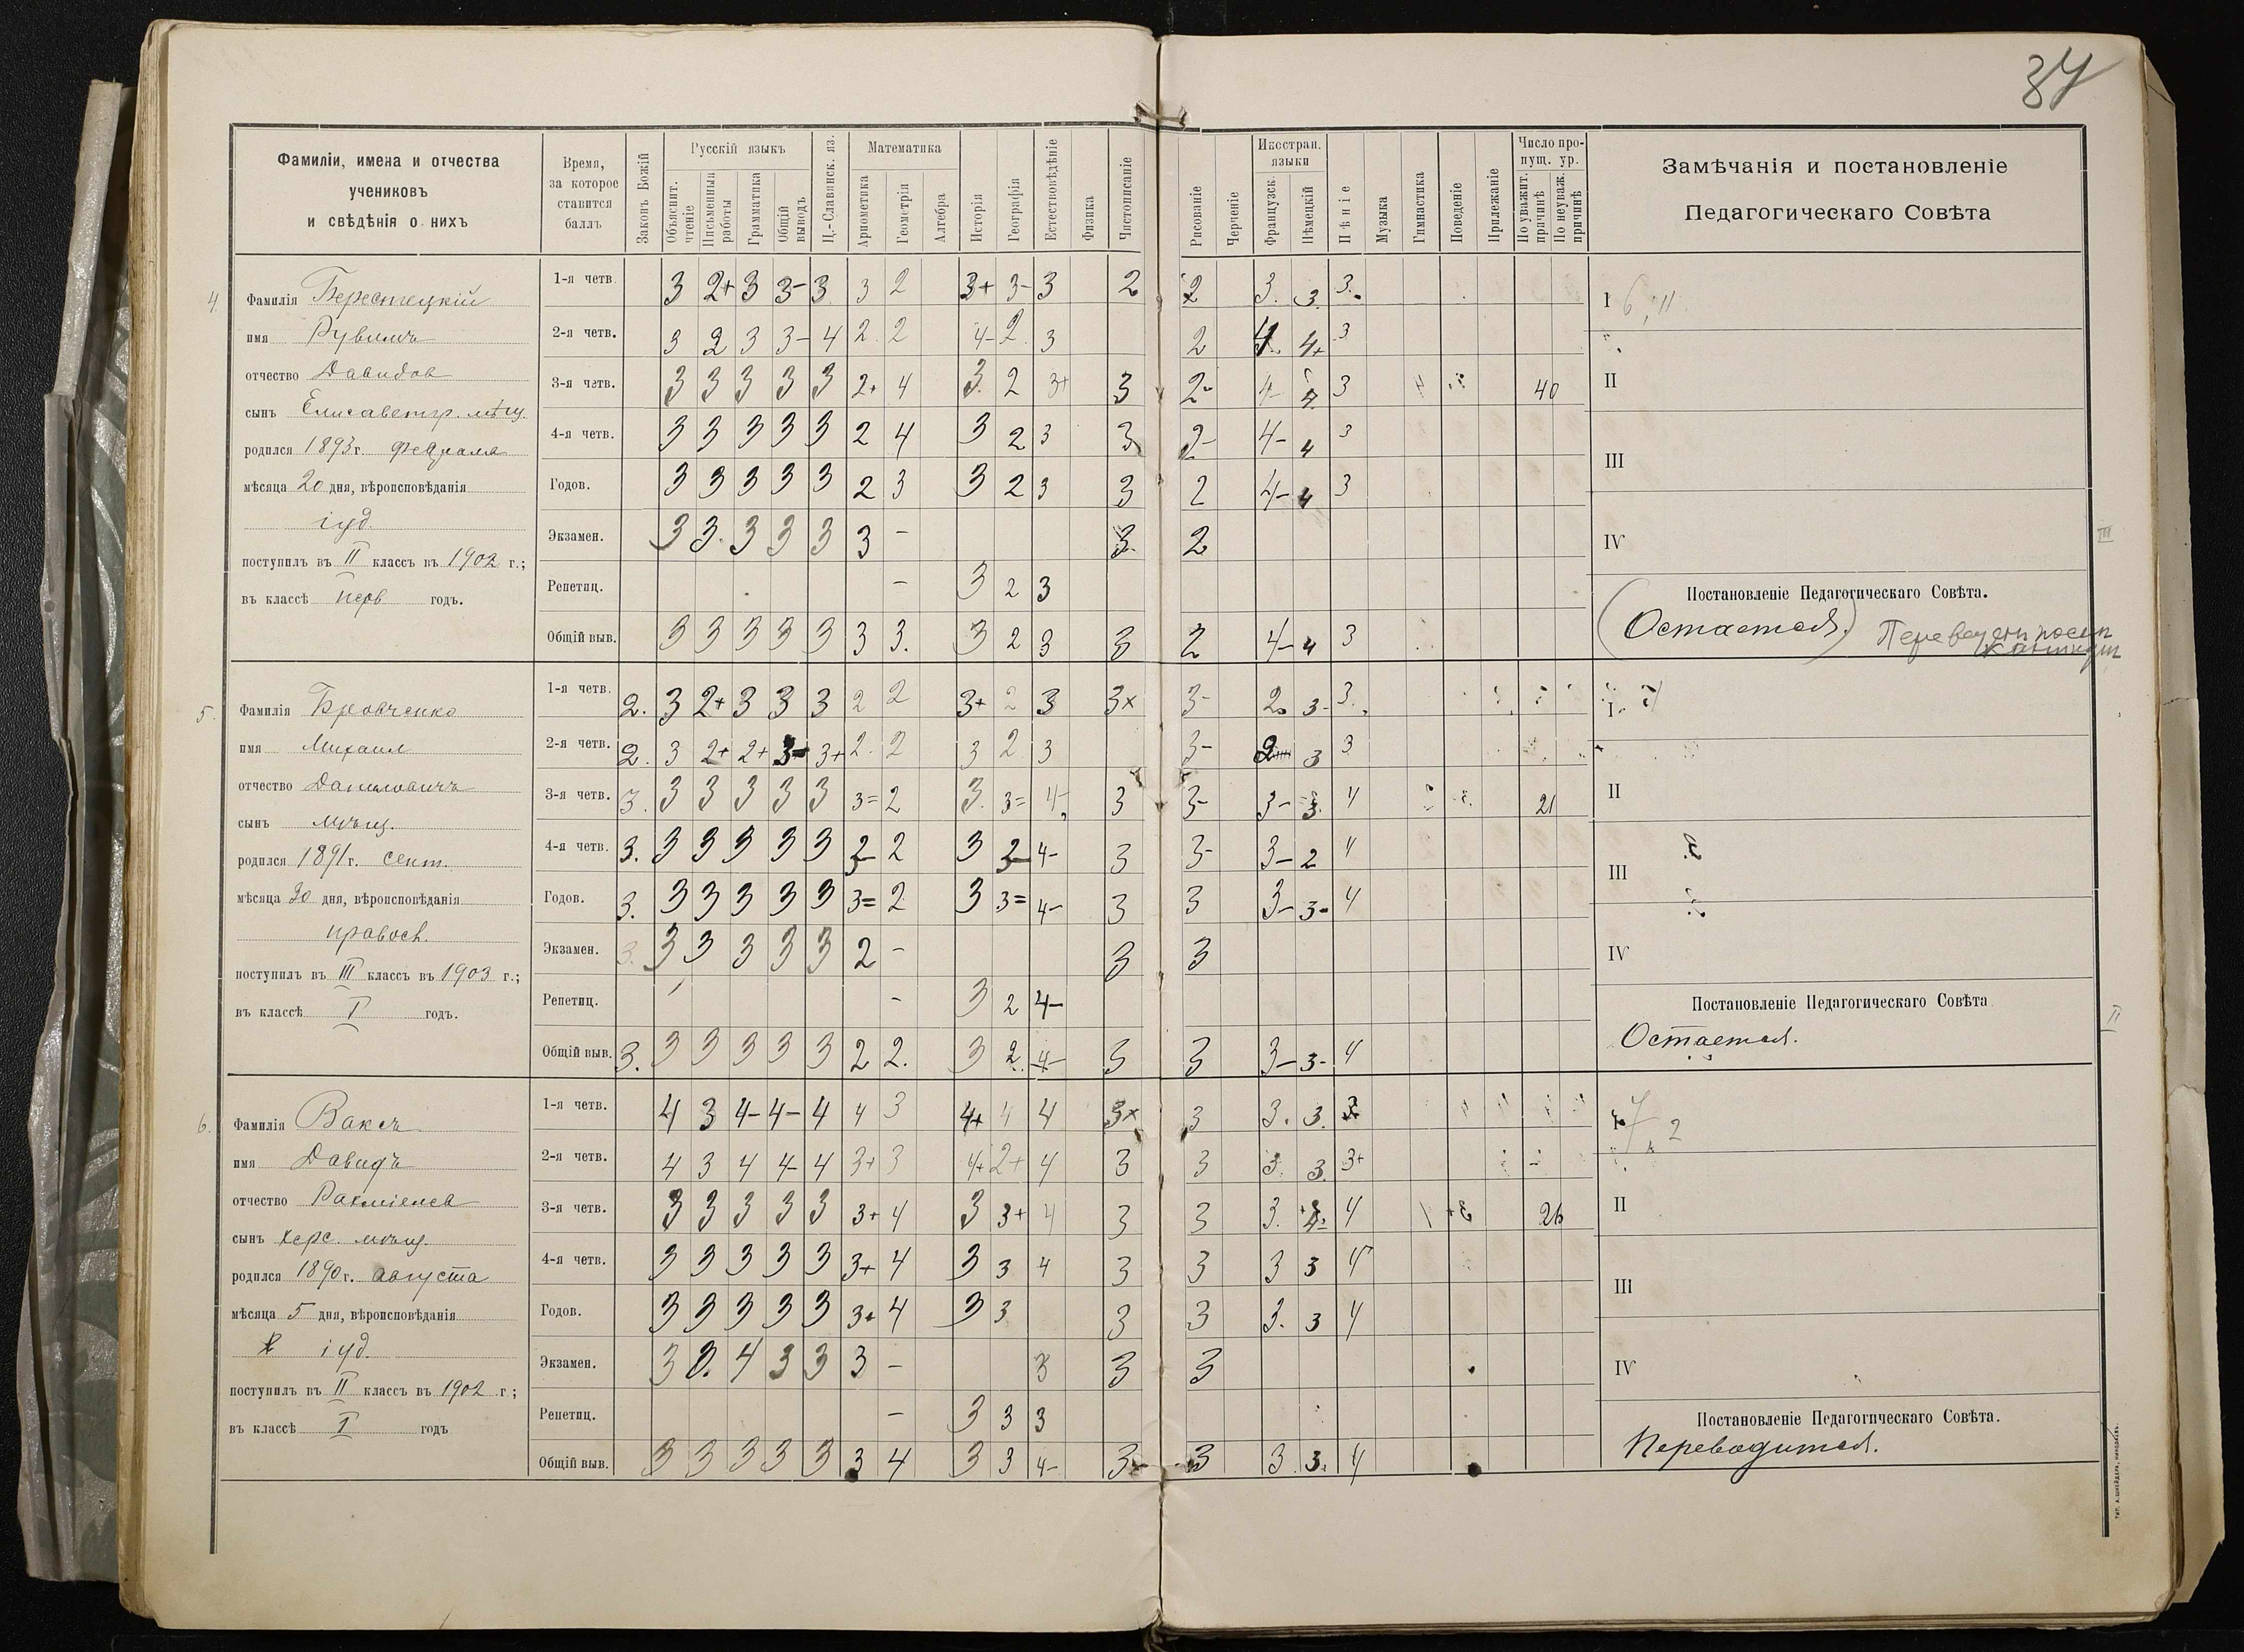 37
Фамиліи, имена и отчества
учениковъ
и свѣдѣнія о нихъ
Время,
за которое
ставится
баллъ
Законъ Божій
Русскій языкъ
Объяснит.
чтеніе
Письменныя
работы
Грамматика
Общій
выводъ
Ц.-Славянск. яз.
Математика
Ариѳметика
Геометрія
Алгебра
Исторія
Географія
Естествовѣдѣніе
Физика
Чистописаніе
Рисованіе
Черченіе
Иностран.
языки
Французск.
Нѣмецкій
Пѣніе
Музыка
Гимнастика
Поведеніе
Прилежаніе
Число про-
пущ. ур.
По уважит.
причинѣ
По неуваж.
причинѣ
Замѣчанія и постановленіе
Педагогическаго Совѣта
4.
Фамилія Берестецкій
имя Рувимъ
отчество Давидов
сынъ Елисаветгр. мѣщ.
родился 1893 г. февраля
мѣсяца 20 дня, вѣроисповѣданія
іуд.
поступилъ въ II классъ въ 1902 г.;
въ классѣ перв годъ.
1-я четв. 3 2+ 3 3- 3 3 2 3+ 3- 3 2 2 3. 3. 3. I 6, 11
2-я четв. 3 2 3 3- 4 2. 2 4- 2. 3 2 4. 4+ 3
3-я четв. 3 3 3 3 3 2+ 4 3. 2 3+ 3 2- 4- 4 3 40 II
4-я четв. 3 3 3 3 3 2 4 3 2 3 3 2- 4- 4 3 III
Годов. 3 3 3 3 3 2 3 3 2 3 3 2 4- 4 3
Экзамен. 3 3. 3 3 3 3 - 3. 2 IV
III
Репетиц. - 3 2 3
Постановленіе Педагогическаго Совѣта.
Общій выв. 3 3 3 3 3 3 3. 3 2 3 3 2 4- 4 3
(Остается.)
5.
Фамилія Бровченко
имя Михаил
отчество Даниловичъ
сынъ мѣщ.
родился 1891 г. сент.
мѣсяца 30 дня, вѣроисповѣданія
правосл.
поступилъ въ III классъ въ 1903 г.;
въ классѣ I годъ.
1-я четв. 2. 3 2+ 3 3 3 2 2 3+ 2 3 3× 3- 2. 3- 3. I
2-я четв. 2. 3 2+ 2+ 3- 3+ 2. 2 3 2. 3 3- 2 3 3
3-я четв. 3. 3 3 3 3 3 3= 2 3. 3= 4- 3 3- 3- 3. 4 21 II
4-я четв. 3. 3 3 3 3 3 2- 2 3 2- 4- 3 3- 3- 2 4 III
Годов. 3. 3 3 3 3 3 3= 2 3 3= 4- 3 3 3- 3- 4
Экзамен. 3. 3 3 3 3 3 2 - 3 3 IV
Репетиц. - 3 2 4-
Постановленіе Педагогическаго Совѣта
II
Общій выв. 3. 3 3 3 3 3 2 2. 3 2. 4- 3 3 3- 3- 4
Остается.
6.
ФамиліяВаксъ
имя Давидъ
отчество Рахміелев
сынъ херс. мѣщ.
родился 1890 г. августа
мѣсяца 5 дня, вѣроисповѣданія
іуд.
поступилъ въ II классъ въ 1902 г.;
въ классѣ I годъ
1-я четв. 4 3 4- 4- 4 4 3 4+ 4 4 3× 3 3. 3. 3 I 7 2
2-я четв. 4 3 4 4- 4 3+ 3 4+ 2+ 4 3 3 3. 3 3+
3-я четв. 3 3 3 3 3 3+ 4 3 3+ 4 3 3 3. 4 26 II
4-я четв. 3 3 3 3 3 3+ 4 3 3 4 3 3 3 3 4 III
Годов. 3 3 3 3 3 3+ 4 3 3 3 3 3. 3 4
Экзамен. 3 3. 4 3 3 3 - 3 3 3 IV
Репетиц. - 3 3 3
Постановленіе Педагогическаго Совѣта.
Общій выв. 3 3 3 3 3 3 4 3 3 4- 3 3 3. 3. 4
Переводится.